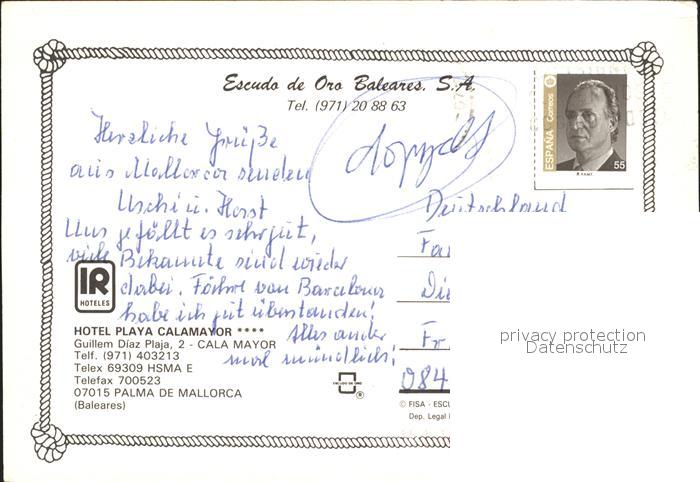 Escudo de Oro Baleares, S.A.
Tel. (971) 20 88 63
ESPAÑA Correos
55
Herzliche Grüße
aus Mallorca senden
Uschi u. Horst
Uns gefällt es sehr gut,
viele Bekannte sind wieder
dabei. Fähre von Barcelona
habe ich gut überstanden!
Alles ander
mal mündlich!
Deutschland
Fa
Die
Fr
084
IR
HOTELES
HOTEL PLAYA CALAMAYOR ****
Guillem Díaz Plaja, 2 - CALA MAYOR
Telf. (971) 403213
Telex 69309 HSMA E
Telefax 700523
07015 PALMA DE MALLORCA
(Baleares)
ESCUDO DE ORO
®
© FISA - ESCU
Dep. Legal
privacy protection
Datenschutz